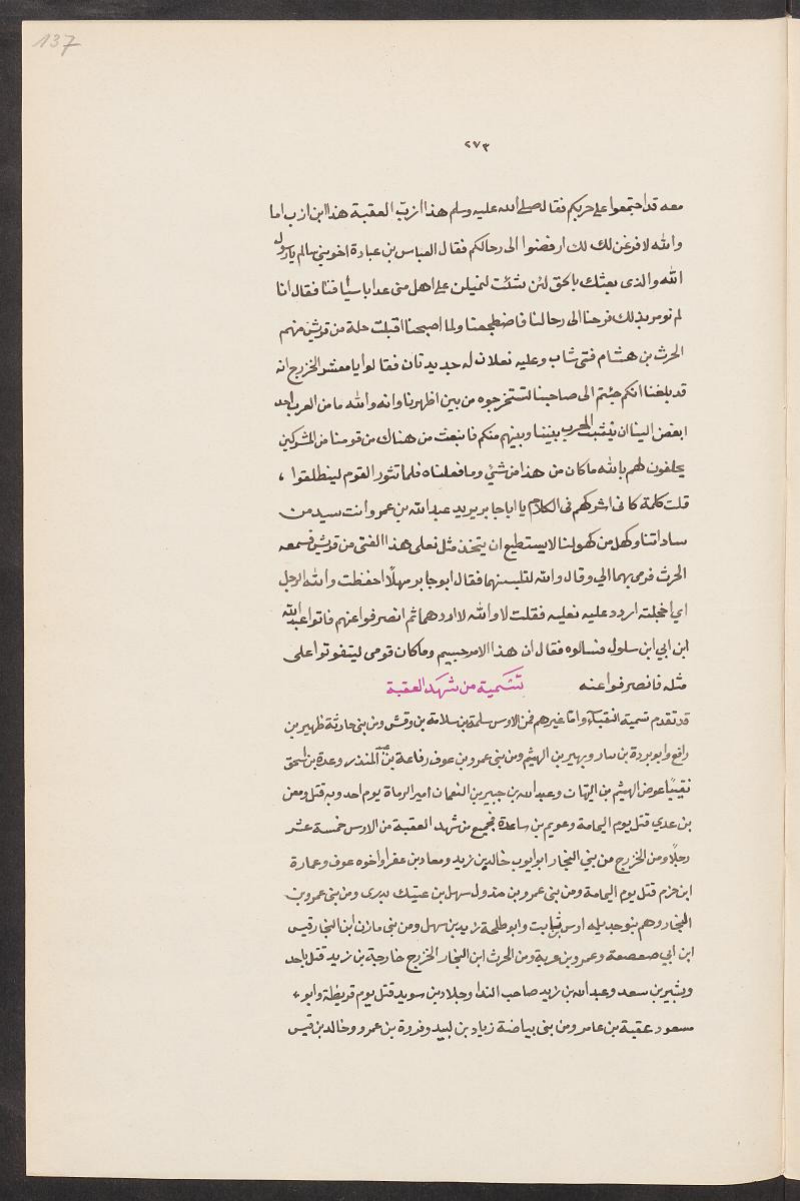 137
٢٧٣
معه قد اجتمعوا على حربكم فقال صلى الله عليه وسلم هذا ازبّ العقبة هذا ابن ازب اما
والله لافرغن لك لك ارفضوا الى رحالكم فقال العباس بن عبادة اخو بني سالم يا رسول
الله والذى بعثك بالحق لئن شئت لنميلن على اهل منى غدا باسيافنا فقال انا
لم نومر بذلك فرحنا الى رحالنا فاضطجعنا ولما اصبحنا اقبلت حلة من قريش منهم
الحرث بن هشام فتى شاب وعليه نعلان له جديدتان فقالوا يا معشر الخزرج انه
قد بلغنا انكم جئتم الى صاحبنا لتستخرجوه من بين اظهرنا وانه والله ما من العرب احد
ابغض الينا ان تنشب الحرب بيننا وبينهم منكم فانبعث من هناك من قومنا من المشركين
يحلفون لهم بالله ما كان من هذا من شئ وما فعلناه فلما تثور القوم لينطلقوا ،
قلت كلمة كانى اشركهم فى الكلام يا ابا جابر يريد عبد الله بن عمرو انت سيد من
ساداتنا وكهل من كهولنا لا يستطيع ان يتخذ مثل نعلى هذا الفتى من قريش فسمعه
الحرث فرمى بهما الي وقال والله لتلبسنهما فقال ابو جابر مهلًا احفظت والله الرجل
اي اخجلته اردد عليه نعليه فقلت لا والله لا اردهما ثم انصرفوا عنهم فاتوا عبد الله
ابن ابي ابن سلول فسالوه فقال ان هذا الامر جسيم وما كان قومى ليتفوتوا على
مثله فانصرفوا عنه تسمية من شهد العقبة
قد تقدم تسمية النقباء واما غيرهم فمن الاوس سلمة بن سلامة بن وقش ومن بنى حارثة ظهير بن
رافع وابو بردة بن نيار وبهير بن الهيثم ومن بنى عمرو بن عوف رفاعة بن المنذر وعده بن اسحق
نقيبًا عوض الهيثم بن التيهان وعبد الله بن جبير بن النعمان امير الرماة يوم احد وبه قتل ومعن
بن عدي قتل يوم اليمامة وعويم بن ساعدة فجميع من شهد العقبة من الاوس خمسة عشر
رجلًا ومن الخزرج من بني النجار ابو ايوب خالد بن زيد ومعاذ بن عفرا واخوه عوف وعمارة
ابن حزم قتل يوم اليمامة ومن بنى عمرو بن مبذول سهل بن عتيك بدرى ومن بنى عمرو بن
النجار وهم بنو حديله اوس بن ثابت وابو طلحة زيد بن سهل ومن بنى مازن ابن النجار قيس
ابن ابي صعصعة وعمرو بن غزية ومن الحرث ابن النجار الخزرج خارجة بن زيد قتل باحد
وبشير بن سعد وعبد الله بن زيد صاحب الندا وخلاد بن سويد قتل يوم قريظة وابو
مسعود عقبة بن عامر ومن بنى بياضة زياد بن لبيد وفروة بن عمرو وخالد بن قيس